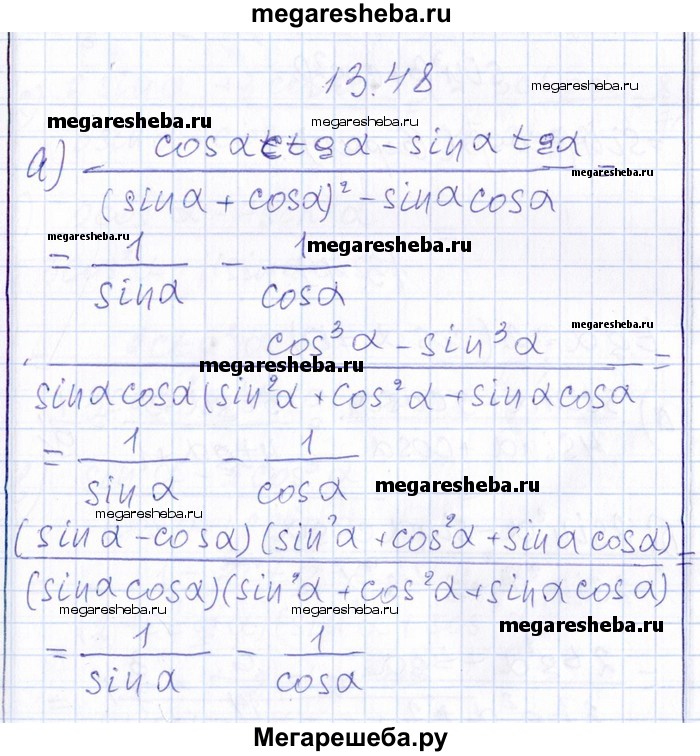 megaresheba.ru
13.48
megaresheba.ru
megaresheba.ru
megaresheba.ru
а) (cosα ctgα − sinα tgα) / ((sinα + cosα)² − sinα cosα) =
megaresheba.ru
megaresheba.ru
= 1/sinα − 1/cosα
megaresheba.ru
megaresheba.ru
(cos³α − sin³α) / (sinα cosα (sin²α + cos²α + sinα cosα) =
= 1/sinα − 1/cosα
megaresheba.ru
megaresheba.ru
(sinα − cosα)(sin²α + cos²α + sinα cosα) / (sinα cosα)(sin²α + cos²α + sinα cosα) =
megaresheba.ru
megaresheba.ru
megaresheba.ru
= 1/sinα − 1/cosα
Мегарешеба.ру